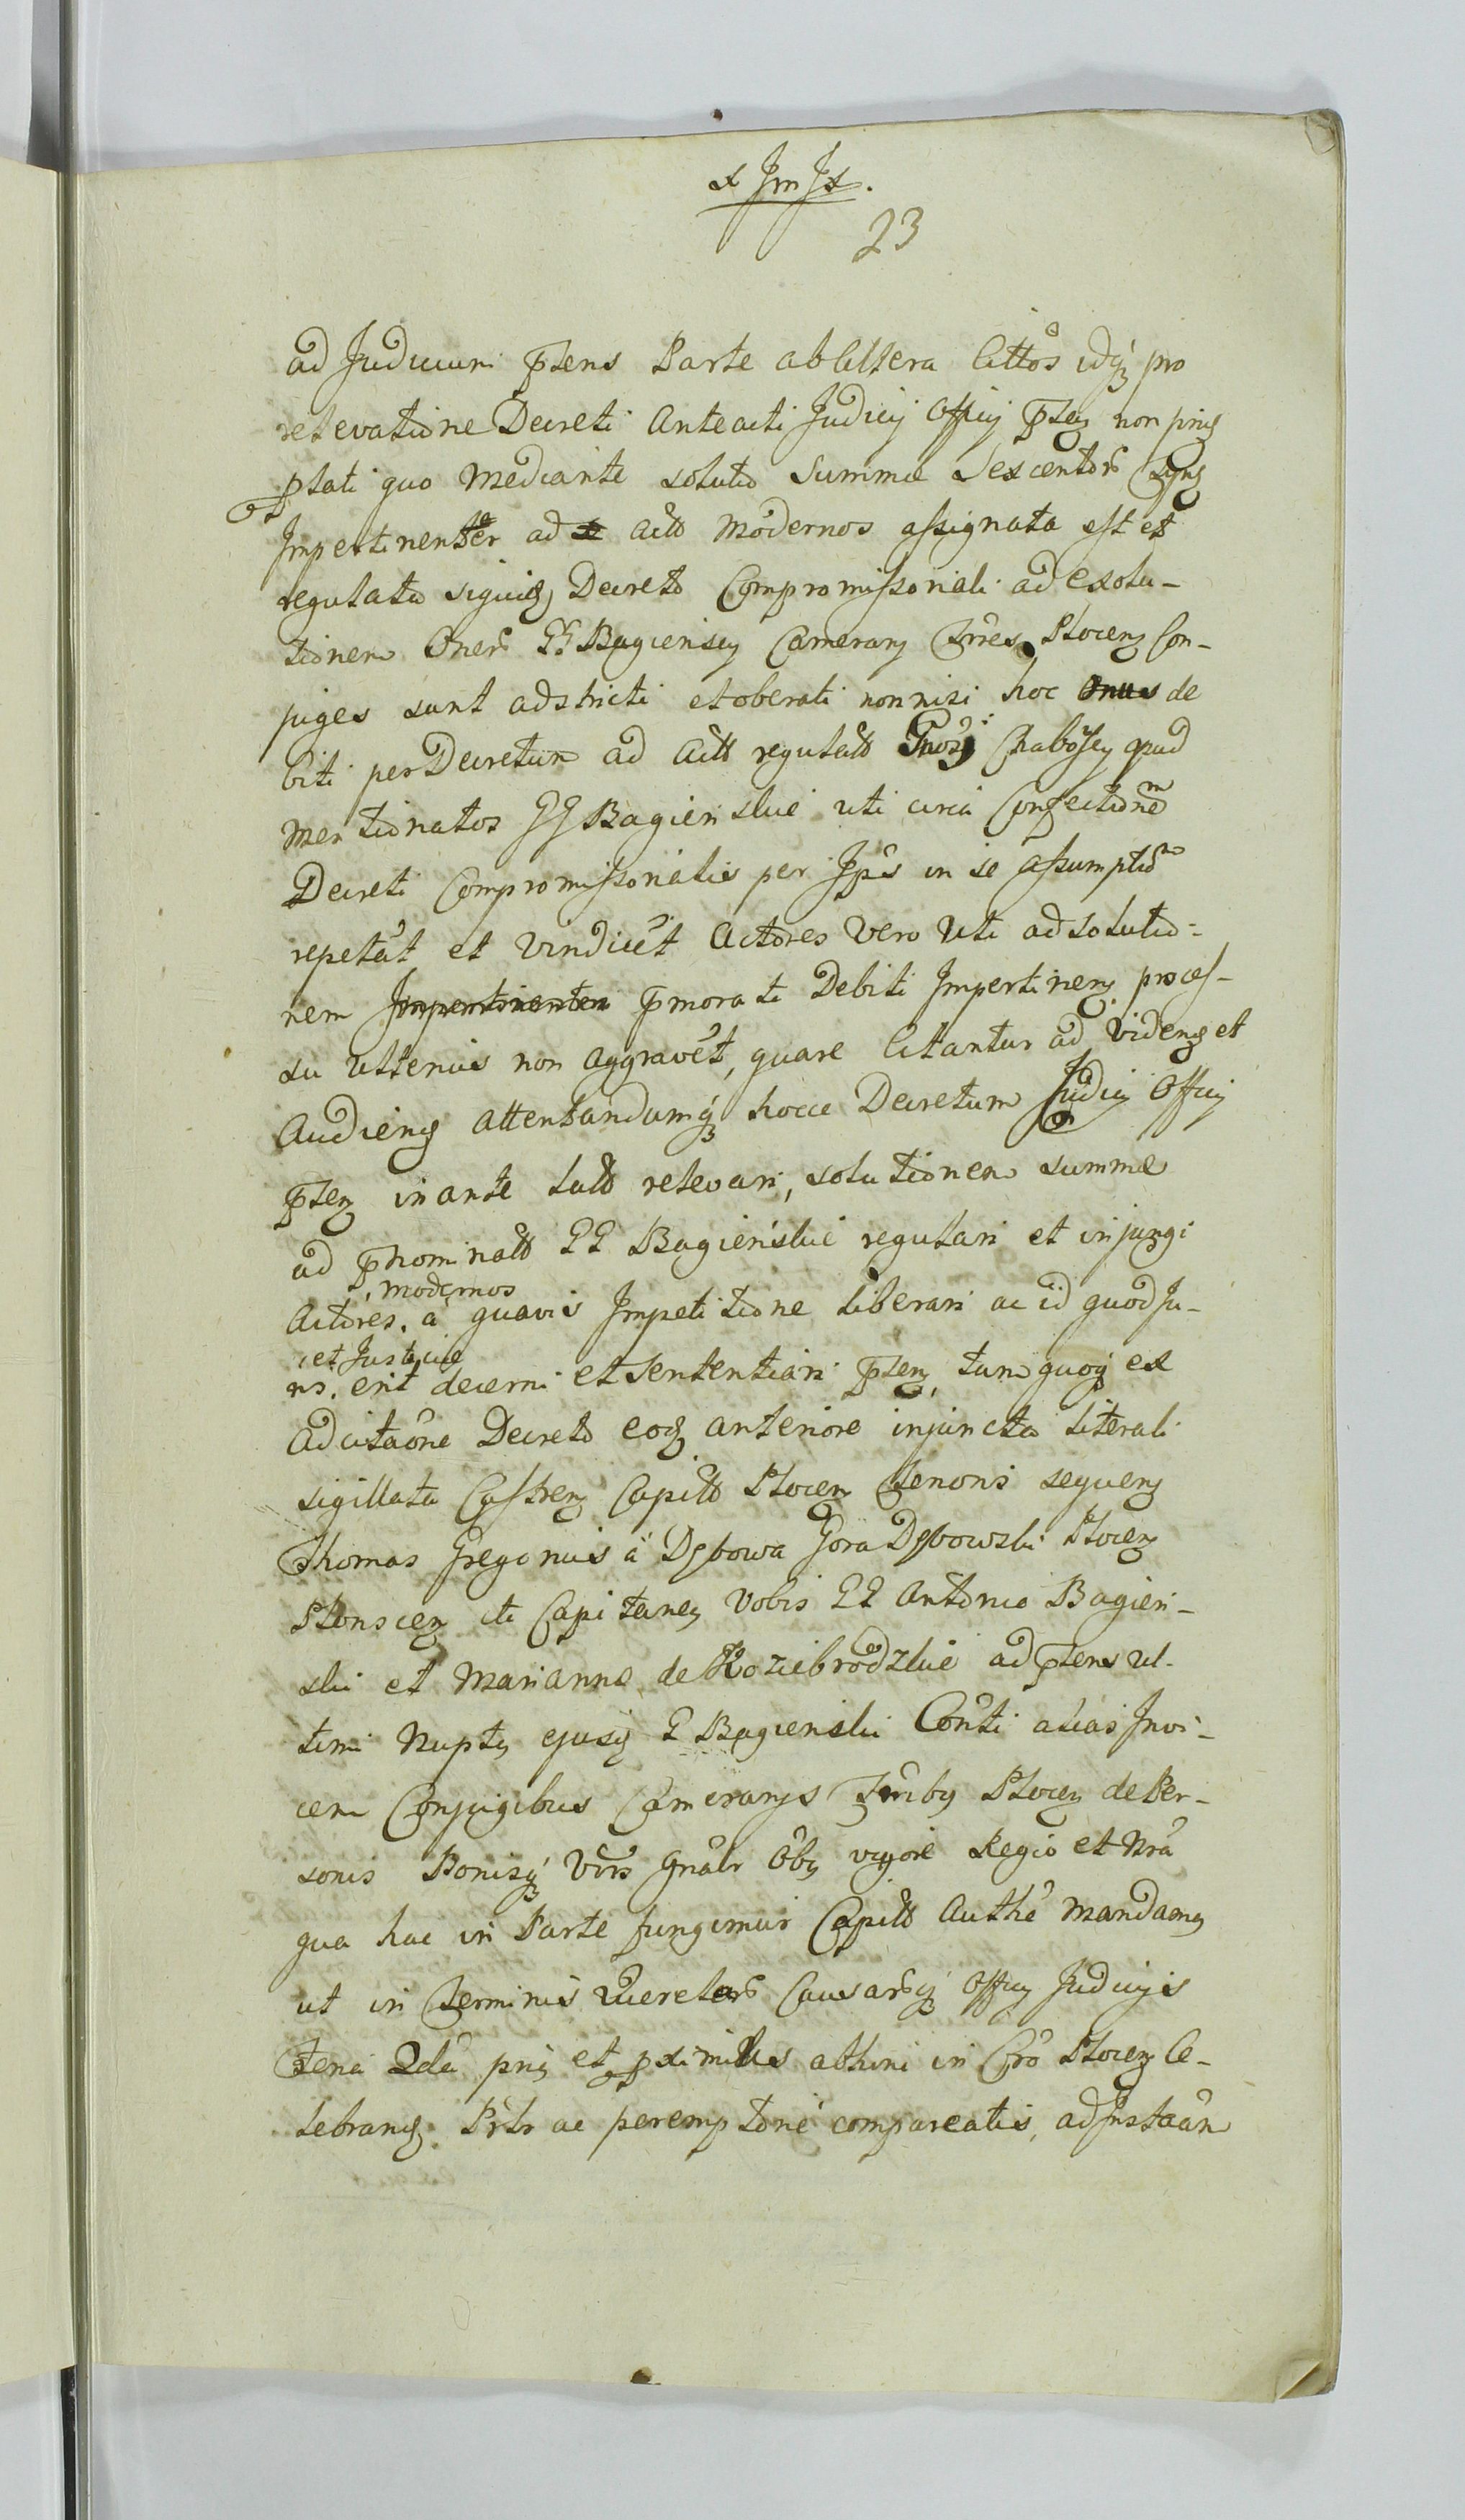 23
ad Judicium pstens Parte ab altera Cittôs idq3 pro
relevatione Decreti Anteacti Judicij Officij psten non prius
plati quo Mediante solutio Summæ Sexcentor
Impertinenter ad Actô Modernos assignata est et
regulata siquid Decreto Compromissoriali ad exolu-
tionem Oner GG Bagienscy Camerarij Plocen Con-
juges sunt adstricti et oberati non nisi hoc de
biti per Decretum ad Actô regulatô Chabôscy quad
mentionatos GG Bagienskie uti circa Confectionem
Decreti Compromissorialis per Ipôs in se assumptum
repetât et Vindicêt Actores Vero Uti ad solutio-
nem pmorati Debiti Impertinen proces-
su Ulterius non aggravêt, quare Citantur ad Viden et
Audien attentandumq3 hocce Decretum Judicij Officij
psten in ante latô relevari, solutionem summæ
ad pnominatô GG Bagieńskie regulari et injungi
modernos
Actores. à quavis Impetitione liberari ac id quod Ju-
et Justitiæ
ris. erit decerni et sententiari psten, tum quoq3 ex
Adcitaône Decreto eod anteriore injuncta literali
sigillata Castren Capitô Plocen tenoris sequen
Thomas Gregorius à Dębowa Gora Dębowski Plocen
Plonscen etc Capitaneus Vobis GG Antonio Bagien-
ski et Marianna de Koziebrodzkie ad pstens ul-
timi Nuptij ejusd G Bagienski Coniti alias Invi-
cem Conjugibus Camerarijs Trribus Plocen de Per-
sonis Bonisq3 Vrîs Gnâlr Ôbus vigore Regio et Nrâ
qua hac in Parte fungimur Capitô Authê Mandamus
ut in Terminis Querelar Causarq3 Officij Judicijs
pris et pximius athini in Crô Plocen Ce-
lebran Prlr ac peremptorie compareatis, ad Instaân